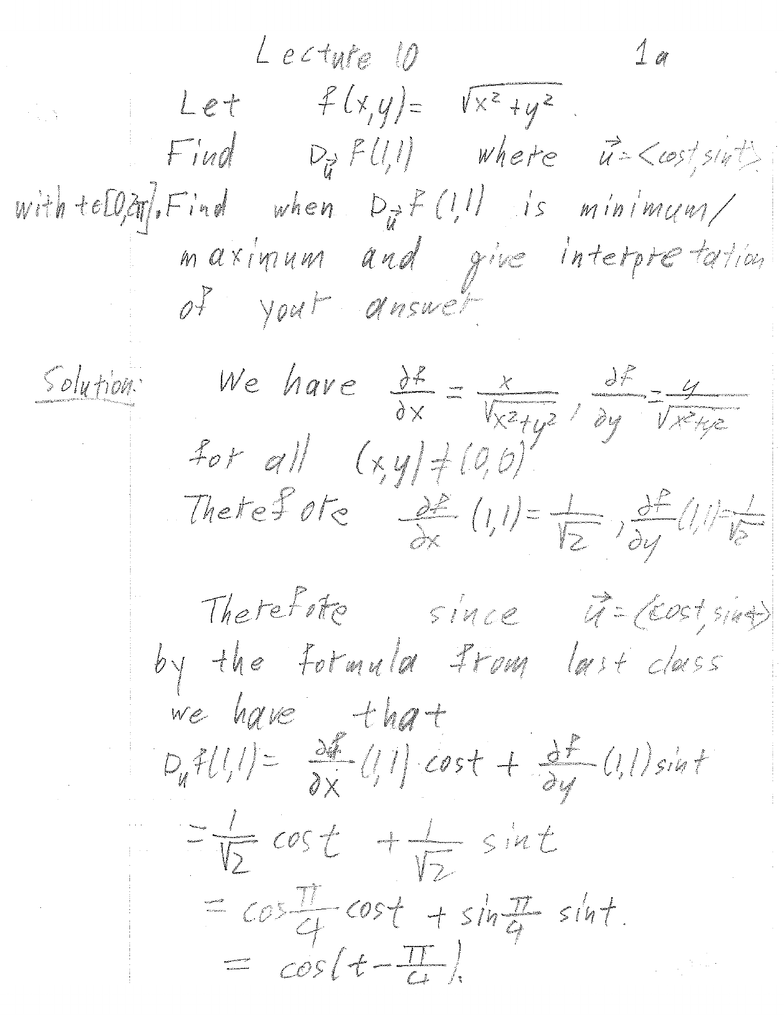 Lecture 10 1a
Let f(x,y)= √(x²+y²).
Find D_u⃗ f(1,1) where u⃗=<cost,sint>
with t∈[0,2π]. Find when D_u⃗ f(1,1) is minimum/
maximum and give interpretation
of your answer.
Solution: We have ∂f/∂x = x/√(x²+y²), ∂f/∂y = y/√(x²+y²)
for all (x,y)≠(0,0)
Therefore ∂f/∂x (1,1)= 1/√2, ∂f/∂y (1,1)= 1/√2
Therefore since u⃗=<cost,sint>
by the formula from last class
we have that
D_u f(1,1)= ∂f/∂x (1,1) cost + ∂f/∂y (1,1) sint
= 1/√2 cost + 1/√2 sint
= cos π/4 cost + sin π/4 sint.
= cos(t-π/4).